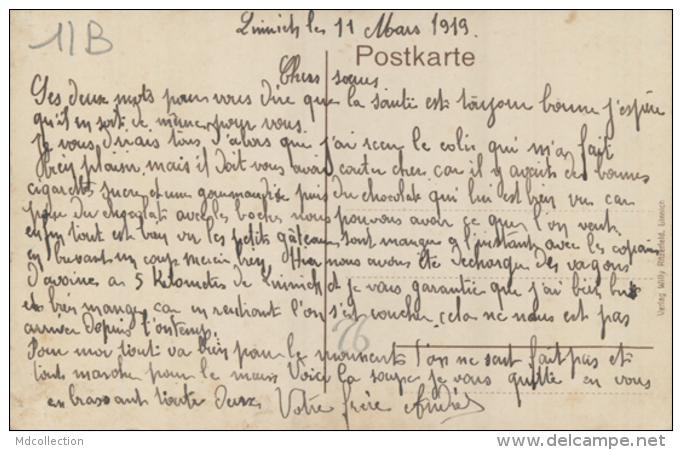 11B
Linnich les 11 Mars 1919.
Postkarte
Chers soeurs
Ses deux mots pour vous dire que la santé est toujour bonne j'espère
qu'il en sorte de même pour vous.
Je vous dirais tous d'abors que j'ai recu le colis qui m'a fait
bien plaisir, mais il doit vous avoir couter cher car il y avait des bonnes
cigarettes sucre et une gourmandise puis du chocolat qui lui est bien vu car
pour du chocolat avec les boches nous pouvons avoir ce que l'on veut
enfin tout est bien vu les petits gâteaux sont manger a l'instant avec les copains
en buvant un coup merci bien Hier nous avons été decharger des vagons
d'avoines a 5 kilometres de Linnich et je vous garantie que j'ai bien bu
et bien manger car en rentrant l'on s'est coucher, cela ne nous est pas
arriver depuis l'ontemps.
Pour moi tout va bien pour le moment l'on ne sent fait pas et
tout marche pour le mieux Voici la soupe je vous quitte en vous
embrassant toute deux Votre frère André
26
Verlag Willy Linnich
Mdcollection
www.delcampe.net